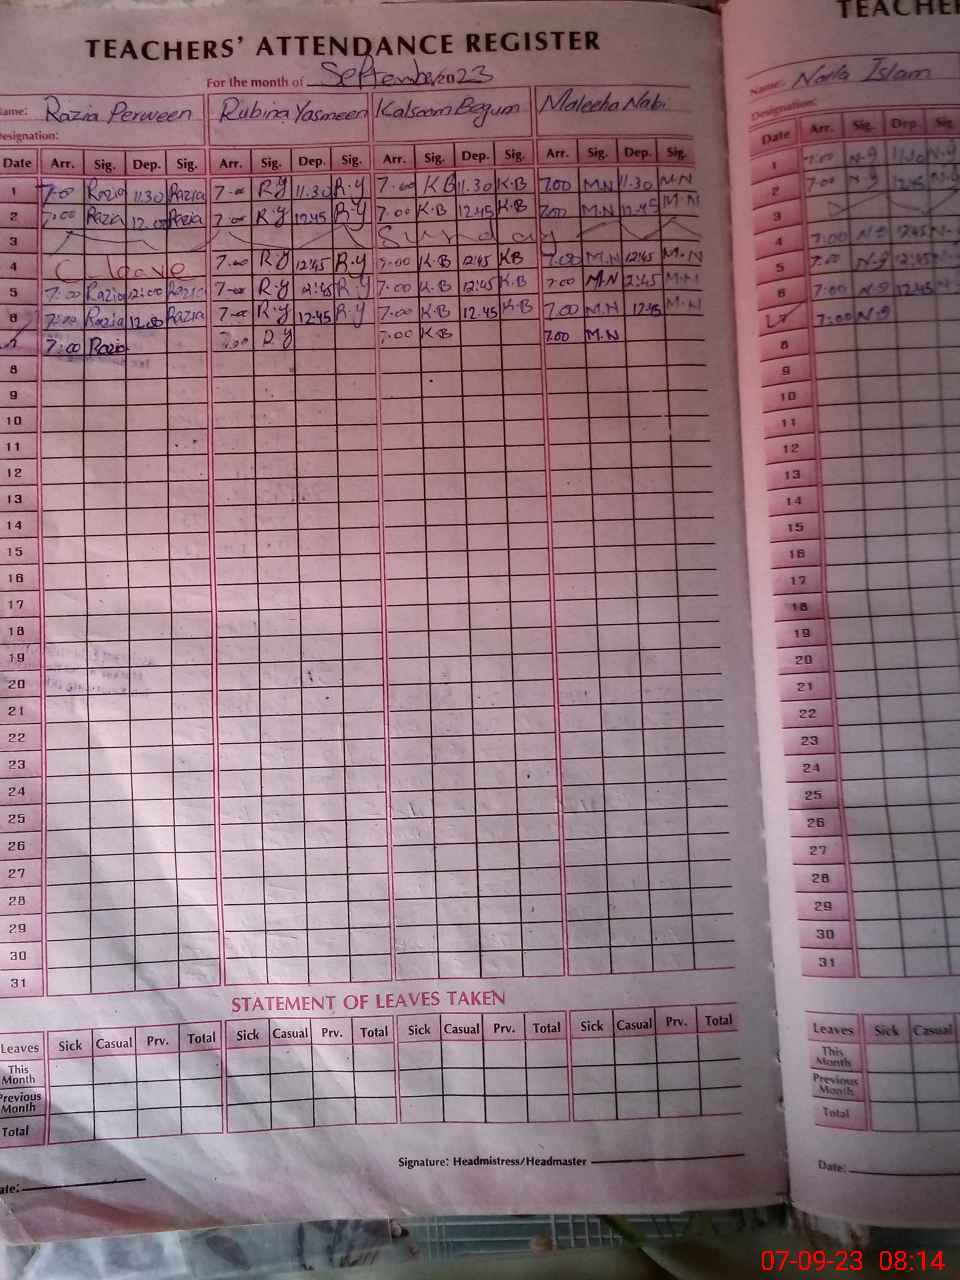 TEACHERS' ATTENDANCE REGISTER
For the month of September 2023
Name: Razia Perween Rubina Yasmeen Kalsoom Begum Maleeha Nabi
Designation:
Date Arr. Sig. Dep. Sig. Arr. Sig. Dep. Sig. Arr. Sig. Dep. Sig. Arr. Sig. Dep. Sig.
1 7:00 Razia 11.30 Razia 7-00 R.Y 11.30 R.Y 7.00 KB 11.30 K.B 7.00 M.N 11.30 M.N
2 7:00 Razia 12.00 Razia 7-00 R.Y 12.45 R.Y 7.00 K.B 12.45 K.B 7.00 M.N 12.45 M.N
3 Sunday
4 C leave 7.00 R.Y 12:45 R.Y 7:00 K.B 12.45 KB 7.00 M.N 12.45 M.N
5 7:00 Razia 12:00 Razia 7-00 R.Y 12:45 R.Y 7:00 K.B 12.45 K.B 7:00 M.N 12:45 M.N
6 7:00 Razia 12.00 Razia 7-00 R.Y 12.45 R.Y 7:00 K.B 12.45 K.B 7.00 M.N 12.45 M.N
7 7:00 Razia 7:00 R.Y 7:00 K.B 7.00 M.N
8
9
10
11
12
13
14
15
16
17
18
19
20
21
22
23
24
25
26
27
28
29
30
31
STATEMENT OF LEAVES TAKEN
Leaves Sick Casual Prv. Total Sick Casual Prv. Total Sick Casual Prv. Total Sick Casual Prv. Total
This Month
Previous Month
Total
Signature: Headmistress/Headmaster
Date:
TEACHE
Name: Naila Islam
Designation:
Date Arr. Sig. Dep. Sig
1 7:00 N-9 11.30 N-9
2 7:00 N-9 12.45 N-9
3
4 7:00 N-9 12.45 N-
5 7:00 N-9 12:45
6 7:00 N-9 12.45 N-
7 7:00 N-9
8
9
10
11
12
13
14
15
16
17
18
19
20
21
22
23
24
25
26
27
28
29
30
31
Leaves Sick Casual
This Month
Previous Month
Total
Date:
07-09-23 08:14